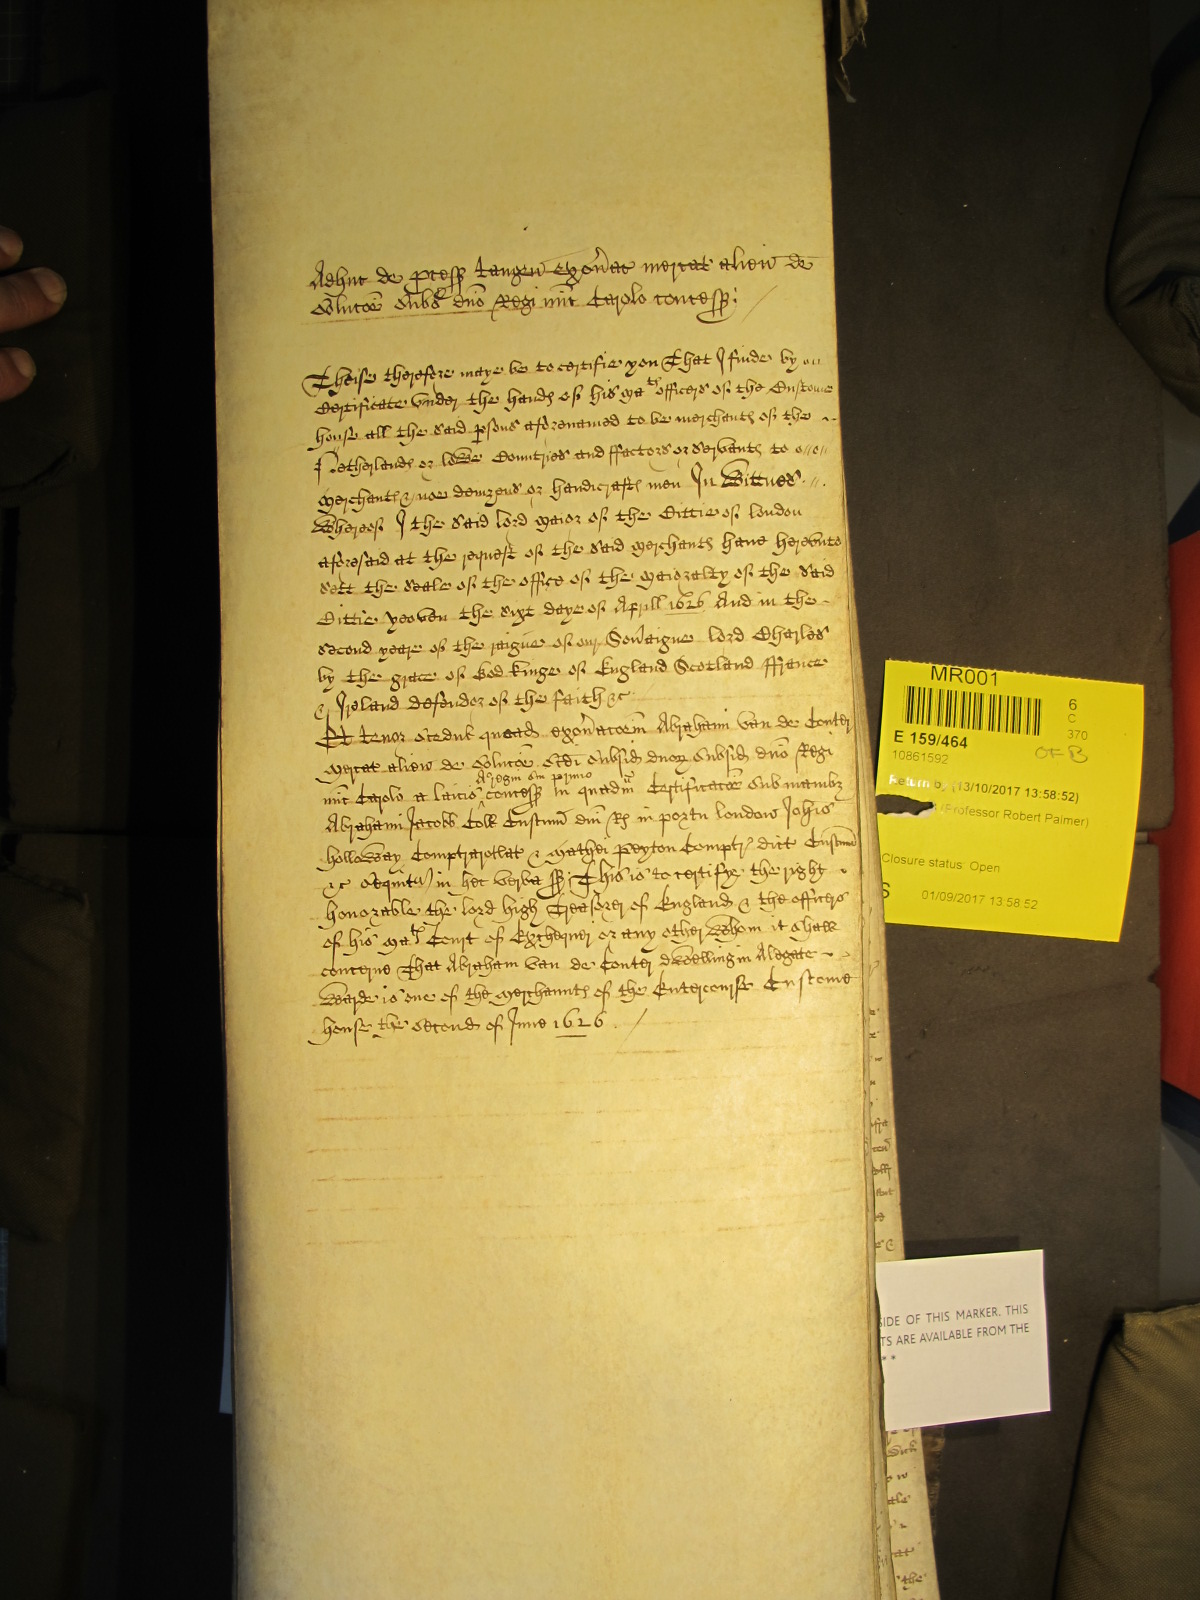 Adhuc de process tangen exon̄ac mercat alien de
Soluc̄oe Subs dn̄o Regi nūc Carolo concess:
Theise therefore maye be to certifie you That I finde by an
Certificate vnder the hands of his Ma^ts officers of the Custome
house all the said psons aforenamed to be merchants of the
Netherlands or lowe Countries and ffactors or servants to
Merchants & noe denizens or handicrafts men In Wittnes
Whereof I the said lord Maior of the Cittie of london
aforesaid at the request of the said Merchants have herevnto
sett the seale of the office of the Maioralty of the said
Cittie yeoven the sixt daye of Aprill 1626 And in the
second yeare of the raigne of our Sov̄aigne lord Charles
by the grace of God Kinge of England Scotland ffrance
& Ireland defender of the faith &c
Et tenor scdus quoad exon̄ac̄oem Abrahami van de Conter
Mercat alien de Soluc̄oe scdi Subsid duoȝ Subsid dn̄o Regi
nūc Carolo a laicis A° regni sui primo concess in quadm Certificac̄oe sub manibȝ
Abrahami Jacobb Coll Custum dn̄i Rs in portu london Joh̄is
Holloway Comptrarotlat & Mathei Peyton Comptr dict Custum
&c sequit in hec verba ss: This is to certifye the right
honorable the lord high Treasorer of England & the officers
of his Ma^ts Court of Exchequer or any other whom it shall
concerne That Abraham van de Conter dwelling in Alegate
warde is one of the Merchaunts of the Entercourse Custome
house the second of June 1626
MR001
6
C
370
E 159/464
OF B
10861592
Return by (13/10/2017 13:58:52)
(Professor Robert Palmer)
Closure status: Open
S
01/09/2017 13:58:52
SIDE OF THIS MARKER. THIS
TS ARE AVAILABLE FROM THE
**